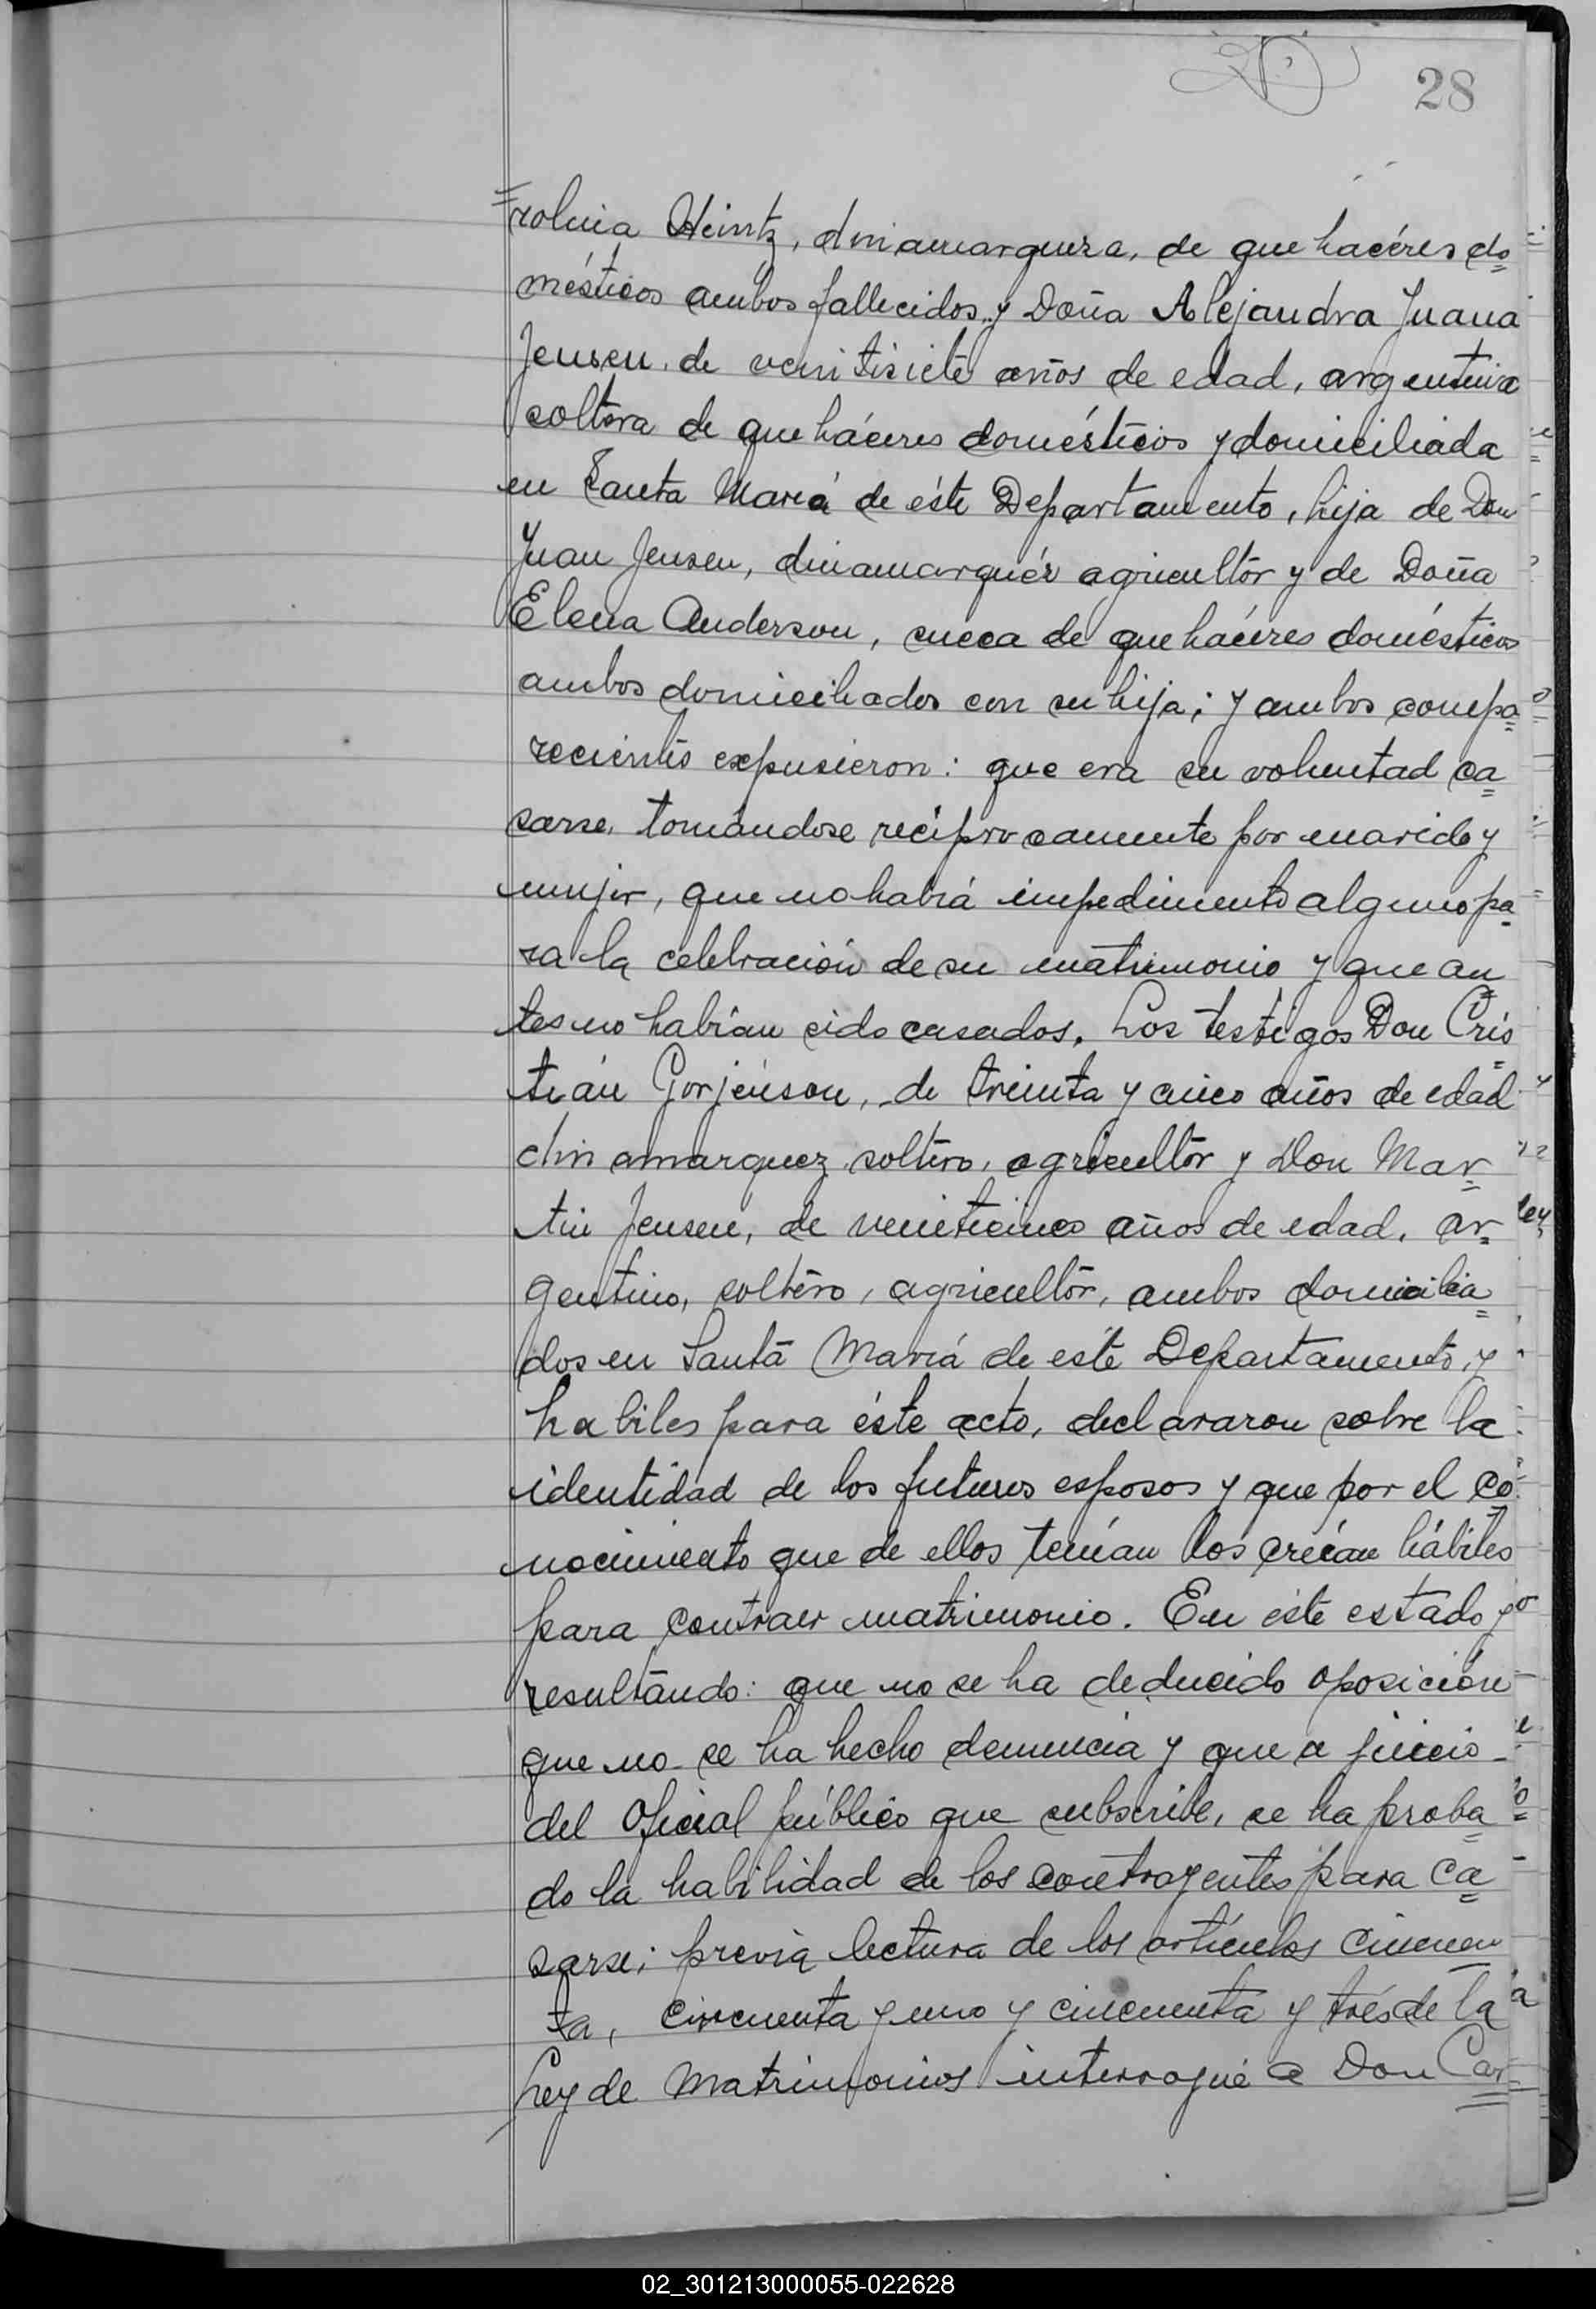 28
rolina Heintz, dinamarqueza, de que hacéres do=
mésticos ambos fallecidos y Doña Alejandra Juana
Jensen de veintisiete años de edad, argentina
soltera de que háceres domésticos y domiciliada
en Santa María de éste Departamento, hija de Don
Juan Jensen, dinamarquéz agricultor y de Doña
Elena Anderson, sueca de que háceres domésticos
ambos domiciliados con su hija; y ambos compa=
recientes expusieron: que era su voluntad ca=
sarse, tomándose recíprocamente por marido y
mujer, que no había impedimento alguno pa=
ra la celebración de su matrimonio y que an=
tes no habían sido casados. Los testigos Don Cris=
tián Gorjénson, de treinta y cinco años de edad
dinamarquez, soltero, agricultor y Don Mar=
tin Jensen, de veinticinco años de edad, ar=
gentino, soltero, agricultor, ambos domicilia=
dos en Santa María de éste Departamento y
habiles para éste acto, declararon sobre la
identidad de los futuros esposos y que por el co=
nocimiento que de ellos tenían los creían hábiles
para contraer matrimonio. En éste estado y
resultando: que no se ha deducido oposición
que no se ha hecho denuncia y que a juicio
del Oficial público que subscribe, se ha proba=
do la habilidad de los contrayentes para ca=
sarse; previa lectura de los artículos cincuen=
ta, cincuenta y uno y cincuenta y trés de la
Ley de Matrimonios interrogué a Don Car=
02_301213000055-022628